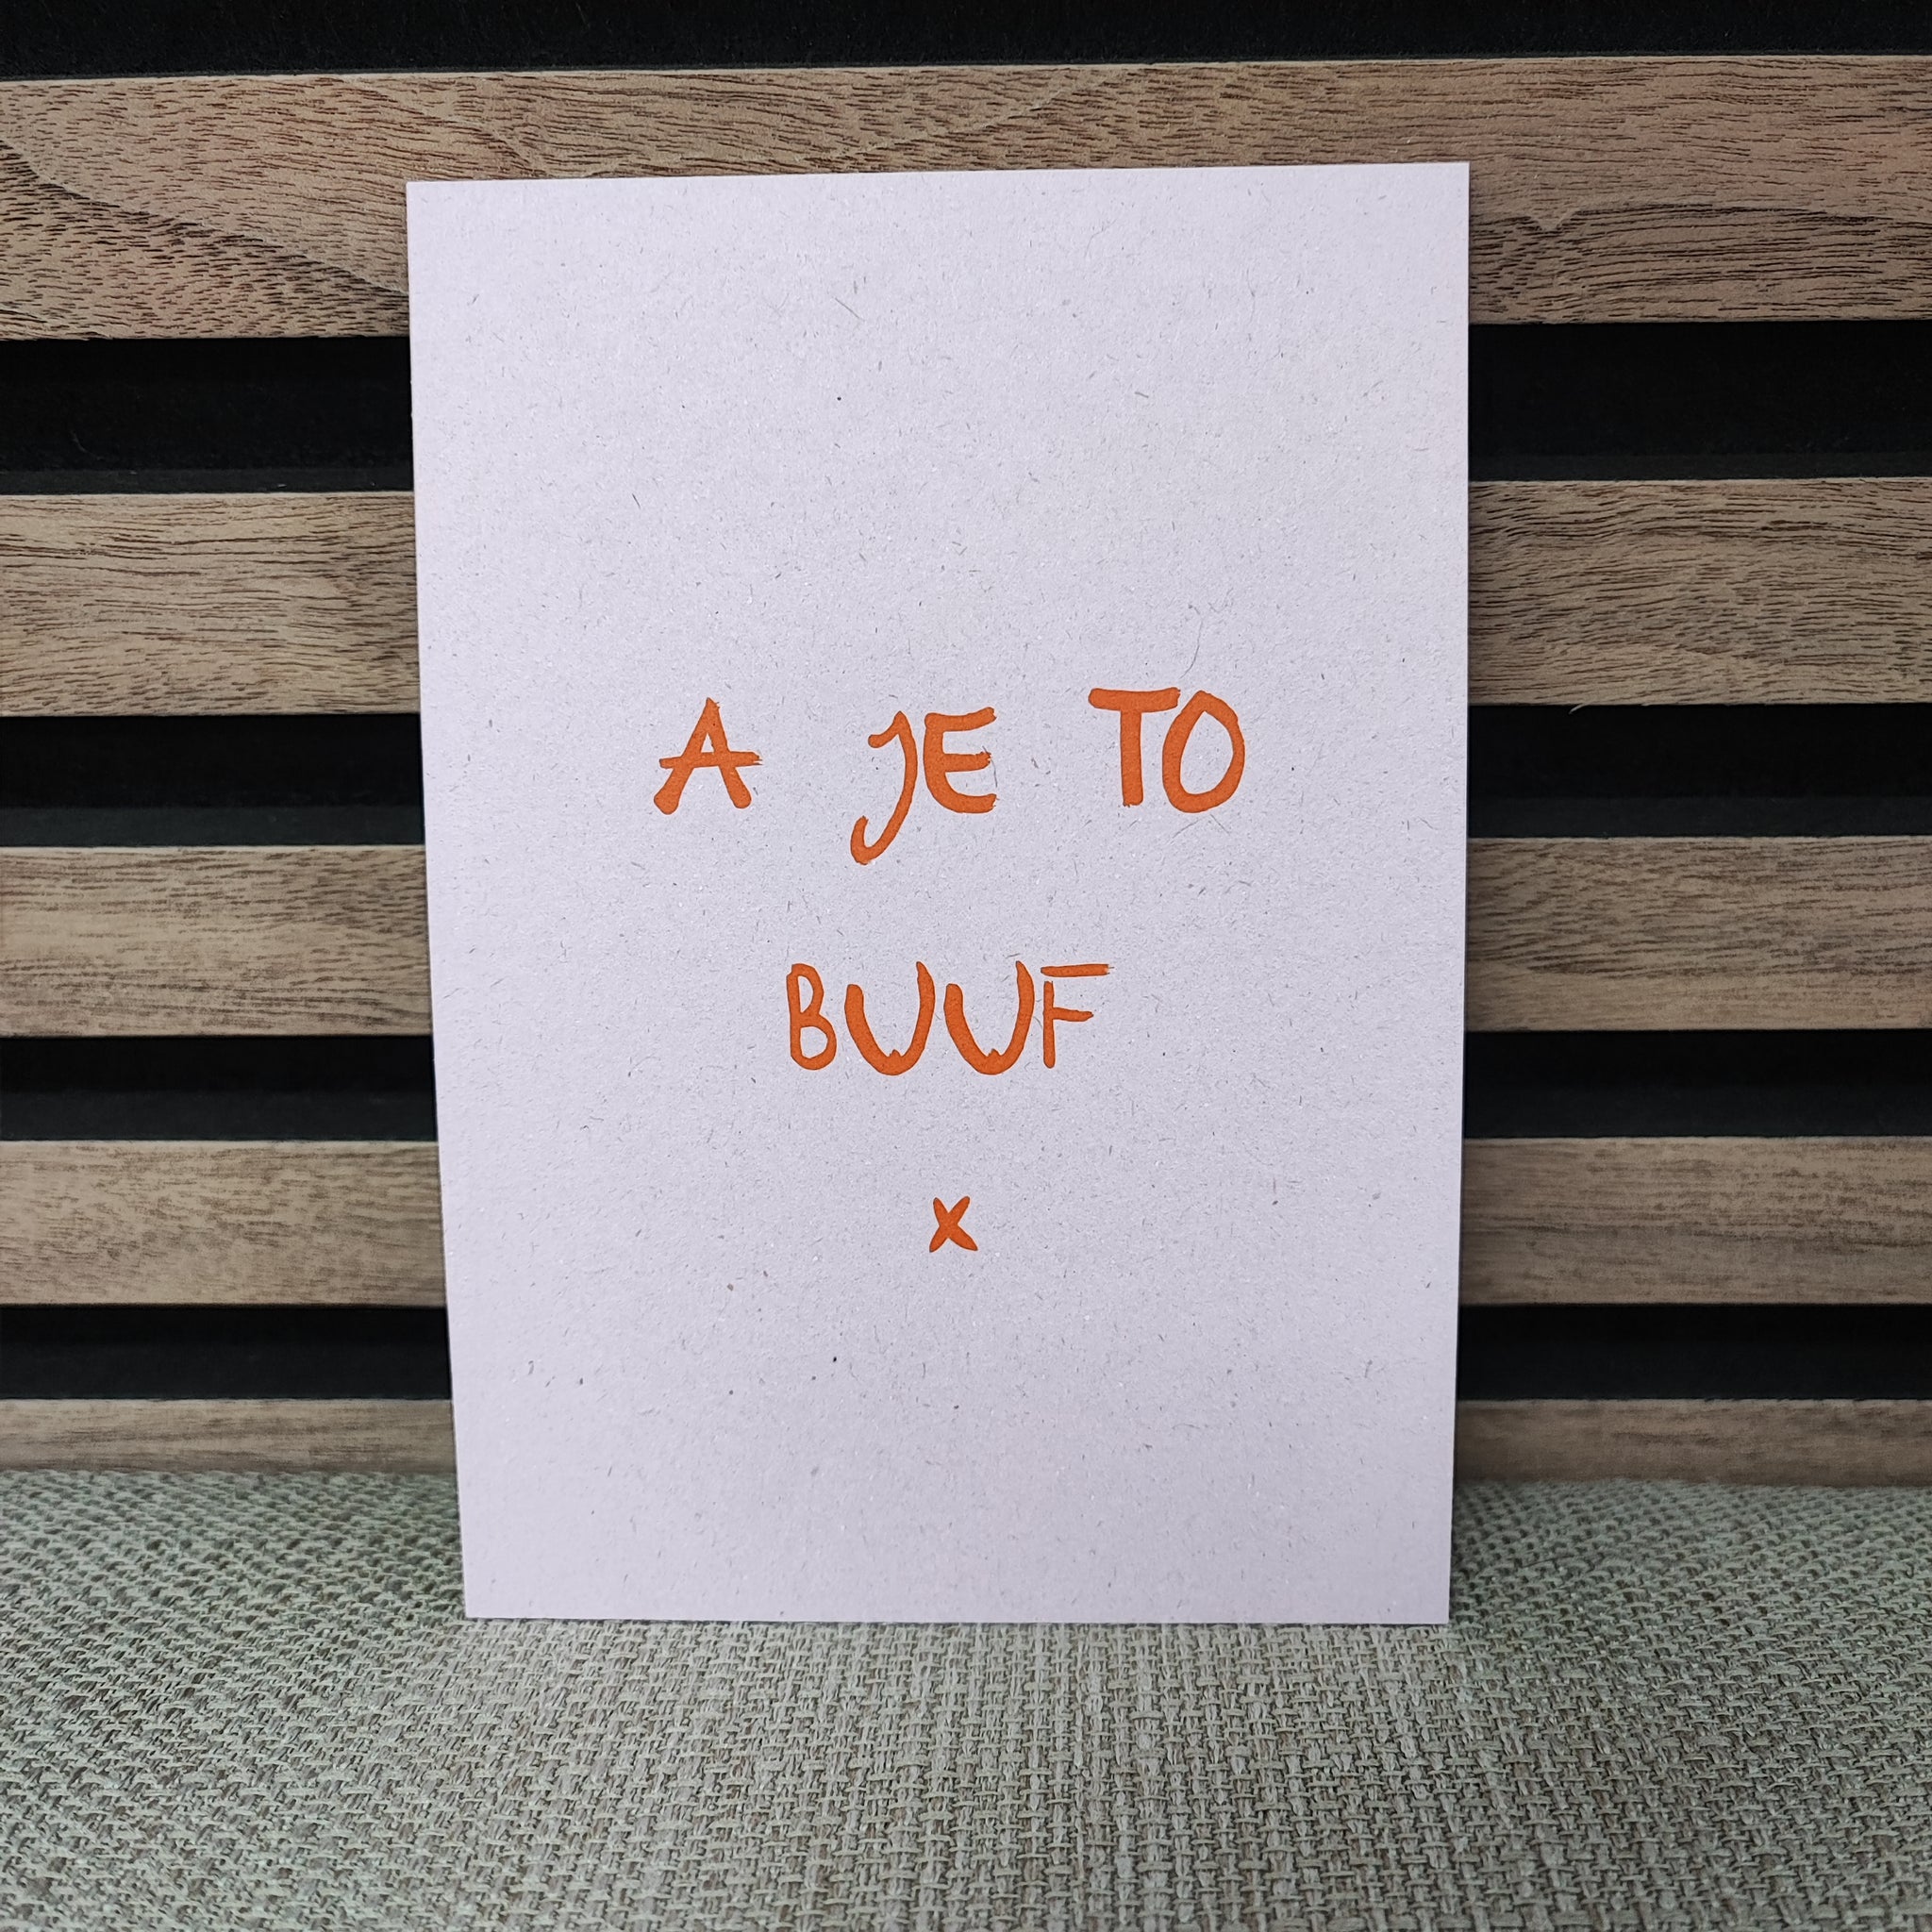 A JE TO
BUUF
x